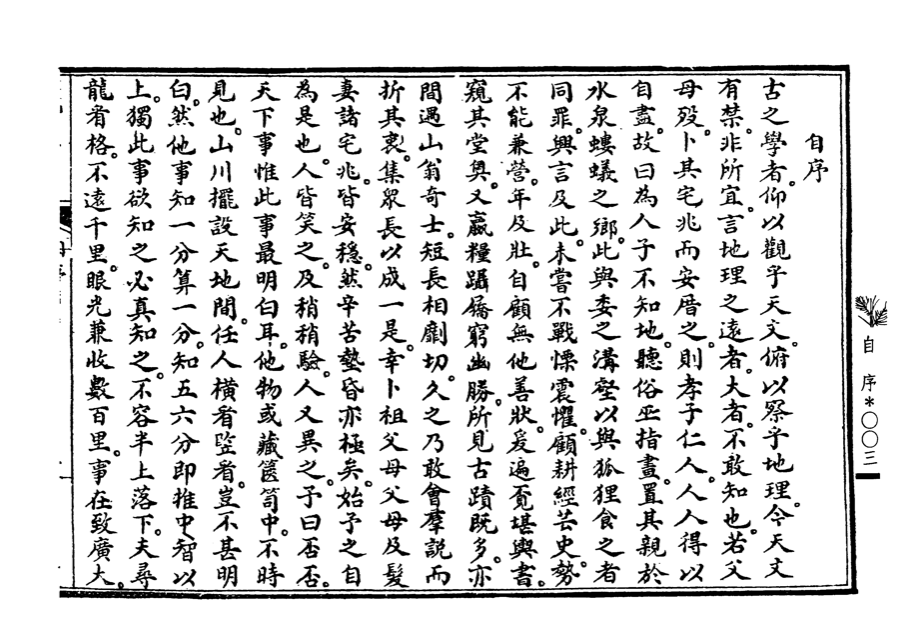 自序
古之學者。仰以觀乎天文。俯以察乎地理。今天文
有禁。非所宜言。地理之遠者。大者。不敢知也。若父
母歿。卜其宅兆而安厝之。則孝子仁人。人人得以
自盡。故曰為人子不知地。聽俗巫指畫。置其親於
水泉螻蟻之鄉。此與委之溝壑以與狐狸食之者
同罪。興言及此。未嘗不戰慄震懼。顧耕經芸史。勢
不能兼營。年及壯。自顧無他善狀。爰遍覓堪輿書。
窺其堂奧。又贏糧躡屩窮幽勝。所見古蹟既多。亦
間遇山翁奇士。短長相劘切。久之乃敢會羣說而
折其衷。集眾長以成一是。幸卜祖父母父母及髮
妻諸宅兆。皆安穩。然辛苦墊昏亦極矣。始予之自
為是也。人皆笑之。及稍稍驗。人又異之。予曰否否。
天下事惟此事最明白耳。他物或藏篋笥中。不時
見也。山川擺設天地間。任人橫看竪看。豈不甚明
白。然他事知一分算一分。知五六分即推中智以
上。獨此事欲知之必真知之。不容半上落下。夫尋
龍看格。不遠千里。眼光兼收數百里。事在致廣大。
自序*〇〇三